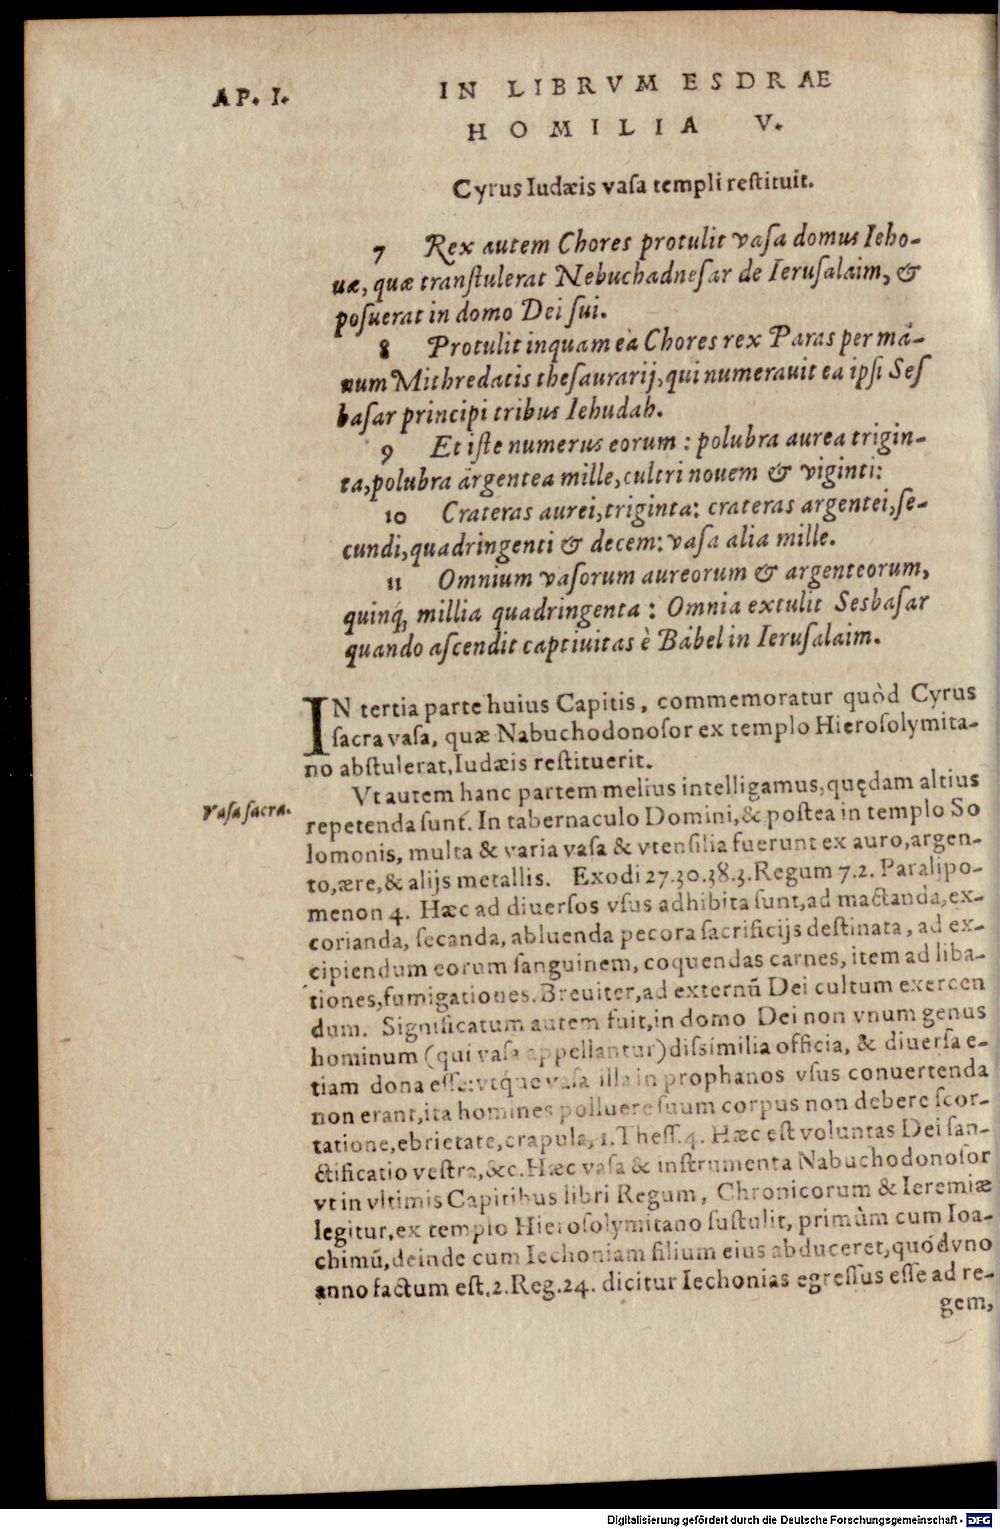 AP. I.
IN LIBRVM ESDRAE
HOMILIA V.
Cyrus Iudæis vasa templi restituit.
7 Rex autem Chores protulit vasa domus Ieho-
uæ, quæ transtulerat Nebuchadnesar de Ierusalaim, &
posuerat in domo Dei sui.
8 Protulit inquam ea Chores rex Paras per ma-
num Mithredatis thesaurarij, qui numerauit ea ipsi Ses
basar principi tribus Iehudah.
9 Et iste numerus eorum: polubra aurea trigin-
ta, polubra argentea mille, cultri nouem & viginti:
10 Crateras aurei, triginta: crateras argentei, se-
cundi, quadringenti & decem: vasa alia mille.
11 Omnium vasorum aureorum & argenteorum,
quinq́; millia quadringenta: Omnia extulit Sesbasar
quando ascendit captiuitas è Babel in Ierusalaim.
IN tertia parte huius Capitis, commemoratur quòd Cyrus
sacra vasa, quæ Nabuchodonosor ex templo Hierosolymita-
no abstulerat, Iudæis restituerit.
Vt autem hanc partem melius intelligamus, quędam altius
Vasa sacra.
repetenda sunt. In tabernaculo Domini, & postea in templo So
lomonis, multa & varia vasa & vtensilia fuerunt ex auro, argen-
to, ære, & alijs metallis. Exodi 27.30.38.3. Regum 7.2. Paralipo-
menon 4. Hæc ad diuersos vsus adhibita sunt, ad mactanda, ex-
corianda, secanda, abluenda pecora sacrificijs destinata, ad ex-
cipiendum eorum sanguinem, coquendas carnes, item ad liba-
tiones, fumigationes. Breuiter, ad externū Dei cultum exercen
dum. Significatum autem fuit, in domo Dei non vnum genus
hominum (qui vasa appellantur) dissimilia officia, & diuersa e-
tiam dona esse: vtq́ue vasa illa in prophanos vsus conuertenda
non erant, ita homines polluere suum corpus non debere scor-
tatione, ebrietate, crapula, 1. Thess. 4. Hæc est voluntas Dei san-
ctificatio vestra, &c. Hæc vasa & instrumenta Nabuchodonosor
vt in vltimis Capitibus libri Regum, Chronicorum & Ieremiæ
legitur, ex templo Hierosolymitano sustulit, primùm cum Ioa-
chimū, deinde cum Iechoniam filium eius abduceret, quod vno
anno factum est. 2. Reg. 24. dicitur Iechonias egressus esse ad re-
gem,
Digitalisierung gefördert durch die Deutsche Forschungsgemeinschaft - DFG